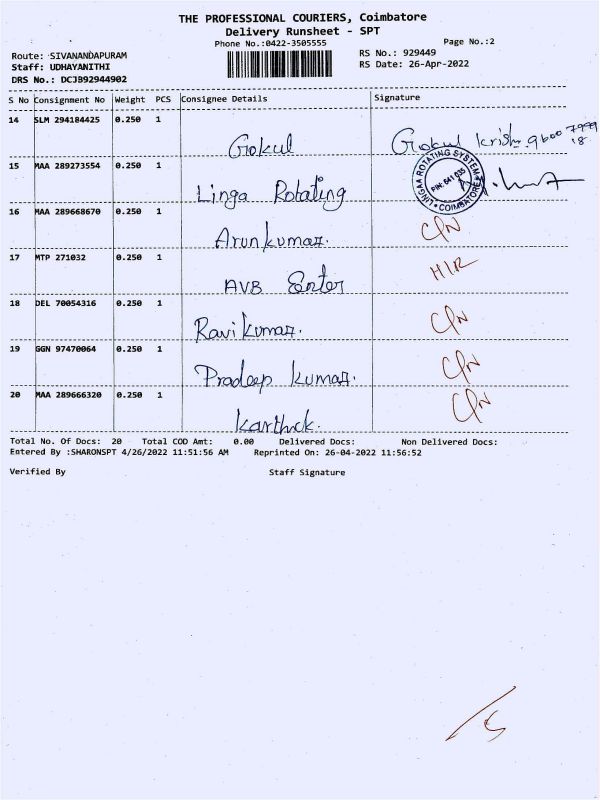 THE PROFESSIONAL COURIERS, Coimbatore
Delivery Runsheet - SPT
Phone No.:0422-3505555 Page No.:2
Route: SIVANANDAPURAM RS No.: 929449
Staff: UDHAYANITHI RS Date: 26-Apr-2022
DRS No.: DCJB92944902
S No Consignment No Weight PCS Consignee Details Signature
14 SLM 294184425 0.250 1
Gokul Gokul Krish 96007999
18
15 MAA 289273554 0.250 1
Linga Rotating LINGAA ROTATING SYSTEM PIN: 641 035 COIMBATORE
16 MAA 289668670 0.250 1
Arunkumar. C/N
17 MTP 271032 0.250 1
AVB Enter HIR
18 DEL 70054316 0.250 1
Ravikumar. C/N
19 GGN 97470064 0.250 1
Pradeep kumar. C/N
20 MAA 289666320 0.250 1 C/N
Karthick.
Total No. Of Docs: 20 Total COD Amt: 0.00 Delivered Docs: Non Delivered Docs:
Entered By :SHARONSPT 4/26/2022 11:51:56 AM Reprinted On: 26-04-2022 11:56:52
Verified By Staff Signature